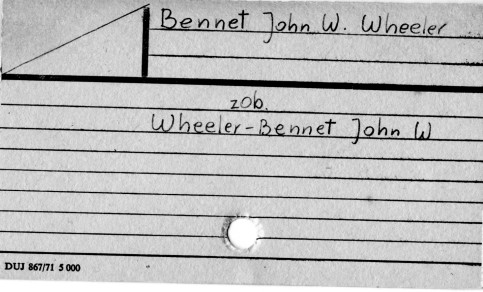 Bennet John W. Wheeler
zob.
Wheeler-Bennet John W
DUJ 867/71 5 000